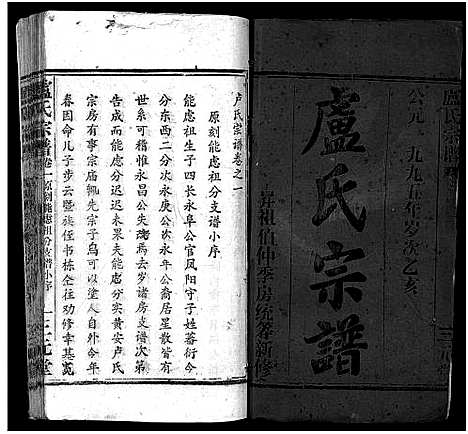 盧氏宗譜
公元一九九五年岁次乙亥
盧氏宗譜
昇祖值仲季房统篆新修
卢氏宗谱卷之一
原刻能虑祖分支谱小序
能虑祖生子四长永阜公官凤阳守子姓蕃衍今
分东西二分次永庚公次永年公裔居星散皆有
世系可稽惟永昌公失焉去岁诸房支谱次第
告成而能虑分迟迟未果夫能虑分实黄安卢氏
宗房有事宗庙輒先宗子乌可以塗人自外今年
春因命儿子步云暨族侄书栋仝往劝修幸基宽
盧氏宗譜
卷一原刻能虑祖分支谱小序
一
三元堂